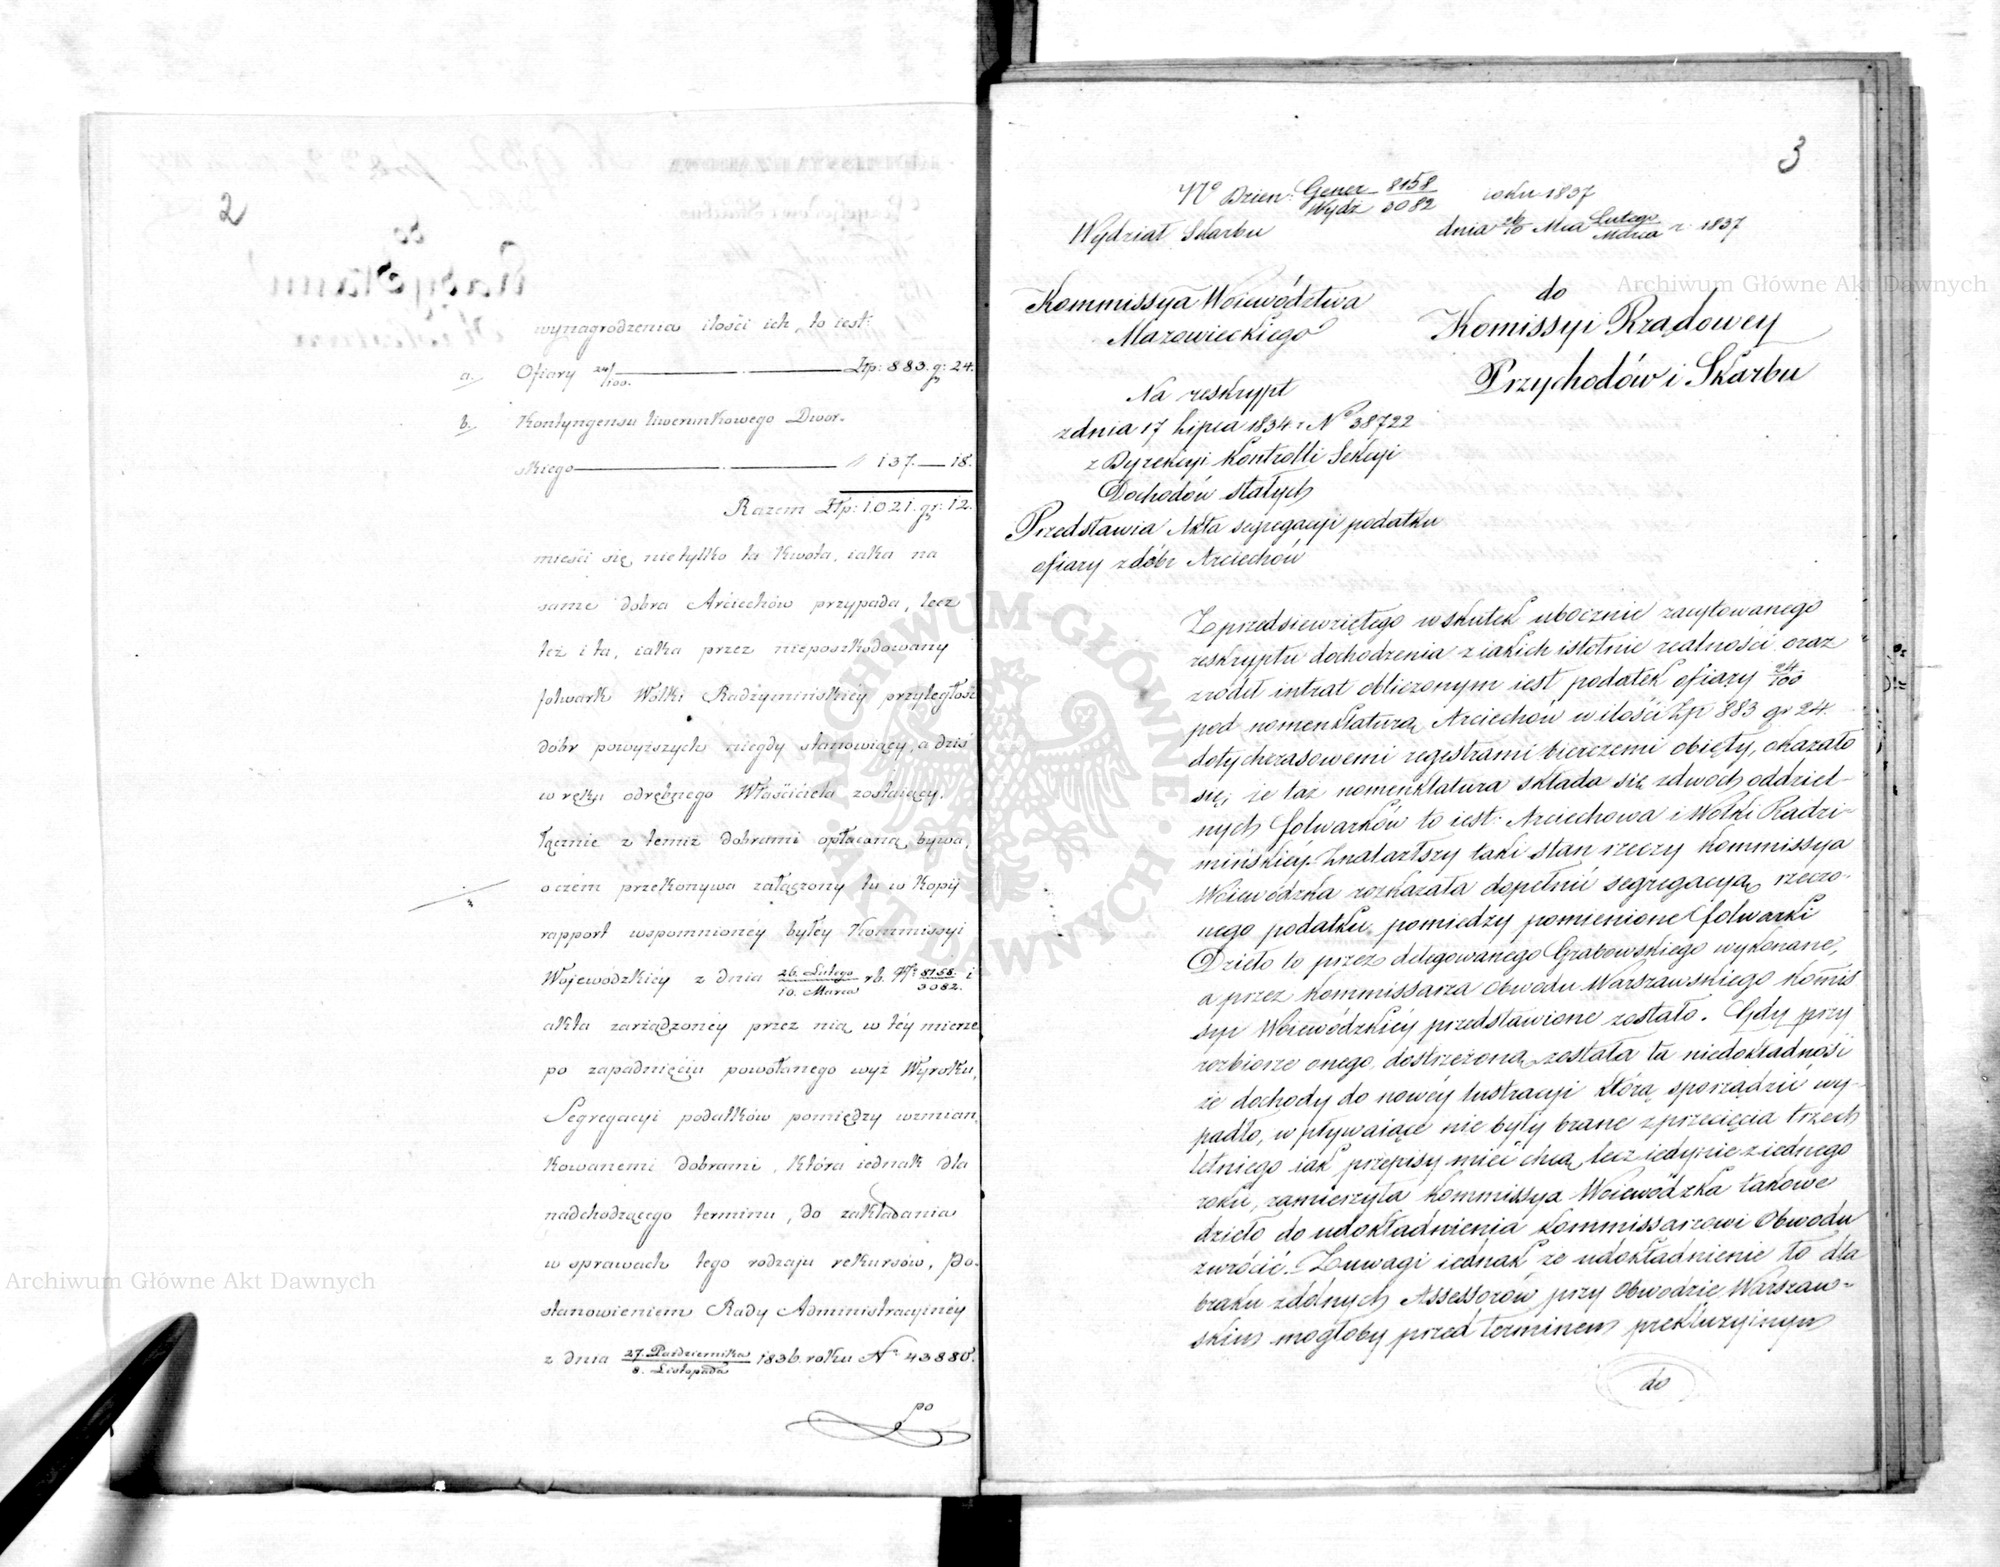 2
wynagrodzenia ilości ich, to iest:
a. Ofiary 24/100. Złp: 883. gr: 24.
b. Kontyngensu liwerunkowego Dwor-
skiego " 137. — 18.
Razem Złp: 1.021. gr: 12.
mieści się nietylko ta kwota, iaka na
same dobra Arciechów przypada, lecz
też i ta, iaka przez nieposzkodowany
folwark Wólki Radzymińskiéy przyległość
dóbr powyższych niegdy stanowiący, a dziś
w ręku odrębnego Właściciela zostaiący,
łącznie z temiż dobrami opłacaną bywa,
o czém przekonywa załączony tu w kopij
rapport wspomnionéy byłey Kommissyi
Wojewódzkiéy z dnia 26. Lutego/10. Marca rb. Nr 8158./3082. i
akta zarządzonéy przez nią w téy mierze
po zapadnięciu powołanego wyż Wyroku,
Segregacyi podatków pomiędzy wzmian,
kowanemi dobrami, która iednak dla
nadchodzącego terminu, do zakładania
w sprawach tego rodzaju rekursów, Po-
stanowieniem Rady Administracyinéy
z dnia 27. Października/8. Listopada 1836. roku Nr 43880.
po
3
No Dzień: Gener 8158/Wydz 3082 roku 1837
Wydział Skarbu dnia 26/10 Mca Lutego/Marca r. 1837
Kommissya Woiewództwa
Mazowieckiego
do
Komissyi Rządowey
Przychodów i Skarbu
Na reskrypt
z dnia 17 Lipca 1834 r No 38722
z Dyrekcyi Kontrolli Sekcyi
Dochodów stałych
Przedstawia Akta segregacyi podatku
ofiary z dóbr Arciechów
Z przedsiewziętego wskutek ubocznie zacytowanego
reskryptu dochodzenia z iakich istotnie realności oraz
zrodeł intrat obliczonym iest podatek ofiary 24/100
pod nomenklaturą Arciechów w ilości Zp 883 gr 24.
dotychczasowemi registrami bierczemi obięty, okazało
się, że taż nomenklatura składa się z dwoch oddziel-
nych folwarków to iest: Arciechowa i Wolki Radzi-
mińskiéy. Znalazłszy taki stan rzeczy Kommissya
Woiewódzka rozkazała dopełnić segregacyą rzeczo-
nego podatku, pomiedzy pomienione folwarki
Dzieło to przez delegowanego Grabowskiego wykonane,
a przez Kommissarza Obwodu Warszawskiego Komis
syi Woiewódzkiéy przedstawione zostało. Gdy przy
rozbiorze onego, dostrzeżoną została ta niedokładność
że dochody do nowéy lustracyi którą sporządzić wy-
padło, wpływaiące nie były brane z przecięcia trzech
letniego iak przepisy mieć chcą, lecz iedynie z iednego
roku, zamierzyła Kommissya Woiewódzka takowe
dzieło do udokładnienia Kommissarzowi Obwodu
zwrócić. Z uwagi iednak że udokładnienie to dla
braku zdolnych Assessorów przy Obwodzie Warszaw-
skim mogłoby przed terminem prekluzyinym
do
Archiwum Główne Akt Dawnych
Archiwum Główne Akt Dawnych
ARCHIWUM GŁÓWNE
AKT DAWNYCH